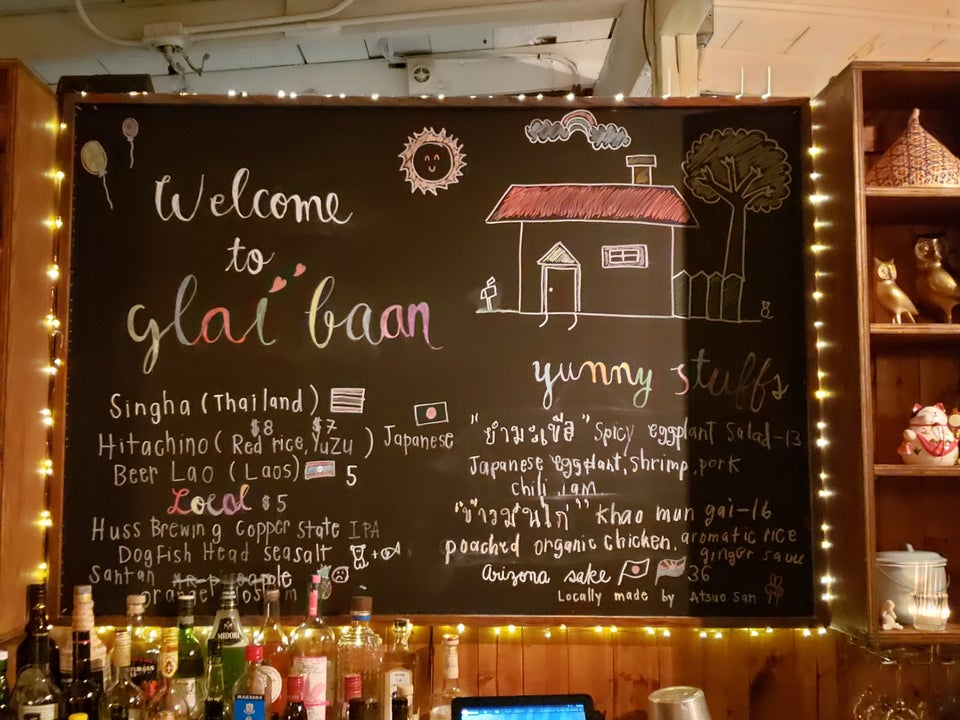 Welcome
to
glai baan
Singha (Thailand)
$8 $7
Hitachino (Red rice, Yuzu) Japanese
Beer Lao (Laos) 5
Local $5
Huss Brewing Copper State IPA
Dogfish Head seasalt
Santan
yunny stuffs
"ยำมะเขือ" Spicy eggplant salad-13
Japanese eggplant, shrimp, pork
chili jam
"ข้าวมันไก่" khao mun gai-16
poached organic chicken, aromatic rice
ginger sauce
Arizona sake 36
Locally made by Atsuo San
MIDORI